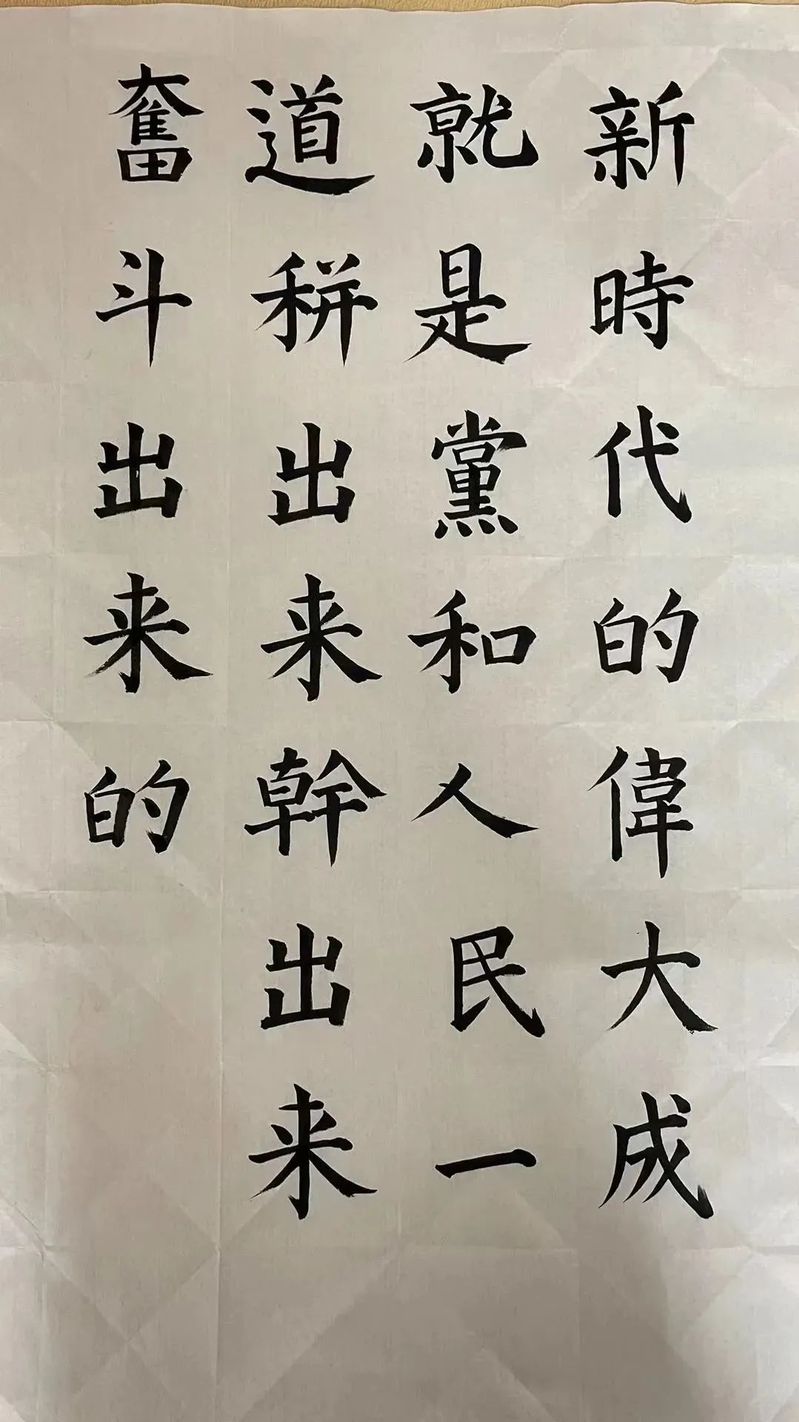 新時代的偉大成
就是黨和人民一
道秤出来幹出来
奮斗出来的